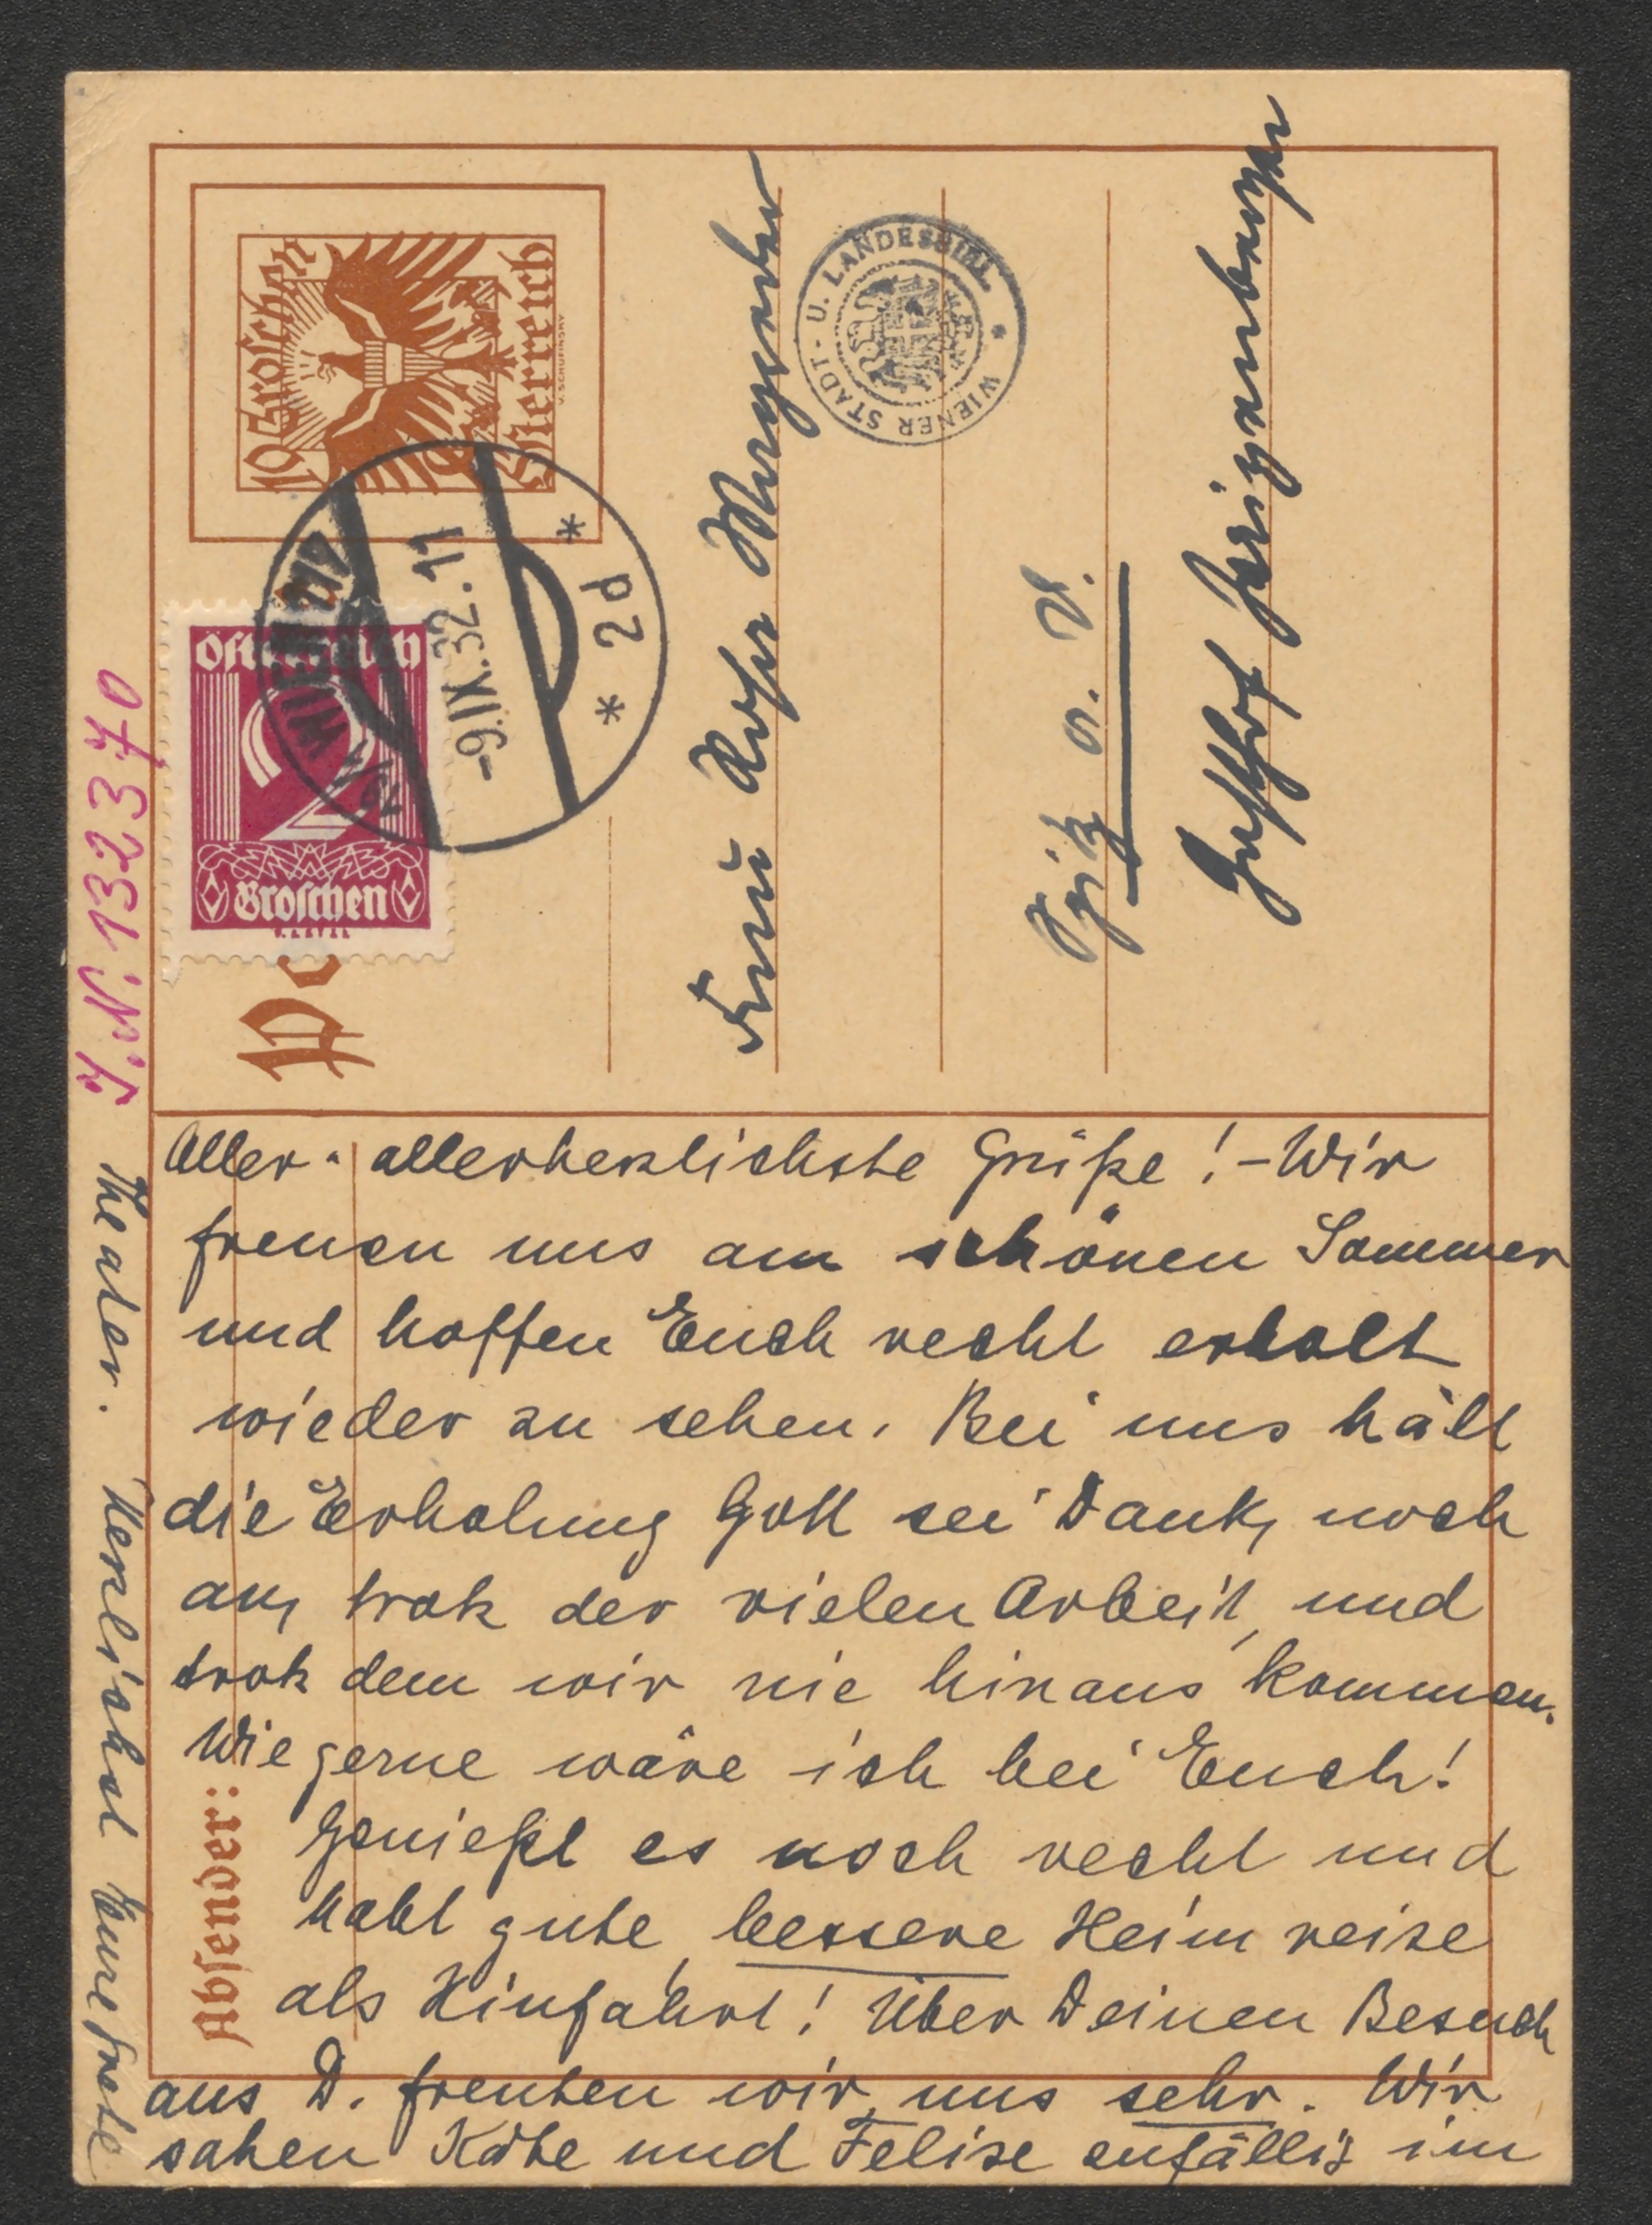 10 Groschen
Österreich
V. SCHUFINSKY
Österreich
2
Groschen
WIEN
-9.IX.32.11
* 2d *
Po
WIENER STADT- U. LANDESBIBL. *
Frau Rosa Mayreder
Spitz a. D.
Gasthof
J.N. 132370
Aller-allerherzlichste Grüße! - Wir
freuen uns am schönen Sommer
und hoffen Euch recht erholt
wieder zu sehen. Bei uns hält
die Erholung Gott sei Dank, noch
an, trotz der vielen Arbeit, und
trotz dem wir nie hinaus kommen.
Wie gerne wäre ich bei Euch!
Genießt es noch recht und
habt gute, bessere Heimreise
als Hinfahrt! Über Deinen Besuch
aus D. freuten wir uns sehr. Wir
sahen Käthe und Felise zufällig im
Theater. Herzlichst Eure
Absender: